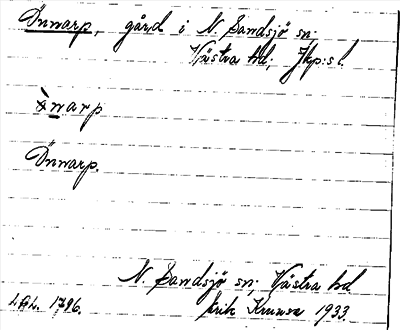 Önnarp, gård i N. Sandsjö sn,
Västra hd, Jkp:s l.
narp
Önnarp.
N. Sandsjö sn, Västra hd
1796. Erik 1933.